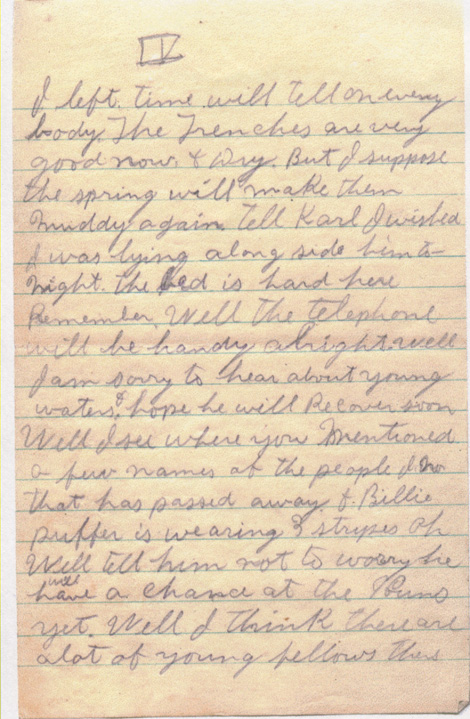 IV
I left. time will tell on every
body. The Trenches are very
good now. & Dry. But I suppose
the spring will make them
muddy again. Tell Karl I wished
I was lying along side him to-
night. the bed is hard here
Remember. Well the telephone
will be handy alright. Well
I am sorry to hear about young
waters. & hope he will Recover soon
Well I see where you mentioned
a few names of the people I no
that has passed away &. Billie
puffer is wearing 3 stripes oh
Well tell him not to worry he
will
have a chance at the
yet. Well I think there are
alot of young fellows